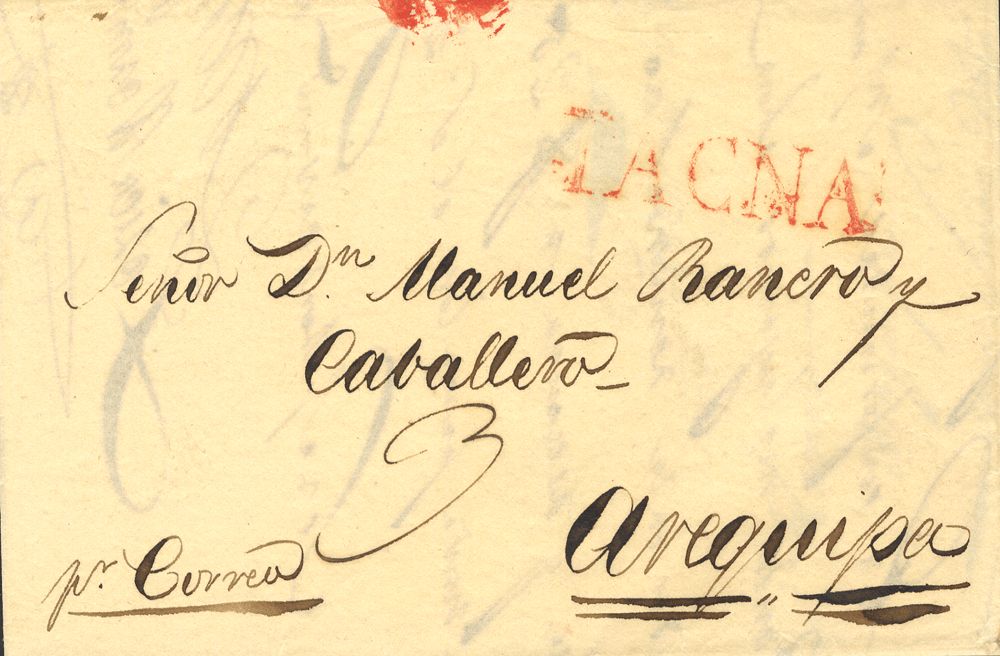 TACNA
Señor Dn. Manuel Rancro y
Caballero
3
Arequipa
pr. Correo